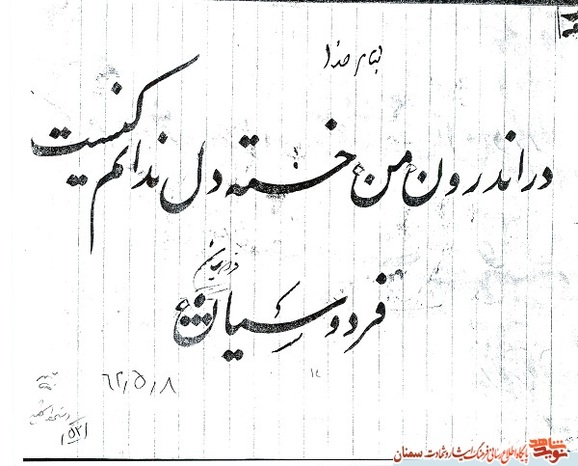 بنام خدا
در اندرون من خسته دل ندانم کیست
فردوسیان
۶۲/۵/۸
نوید شاهد
پایگاه اطلاع رسانی فرهنگ ایثار و شهادت سمنان